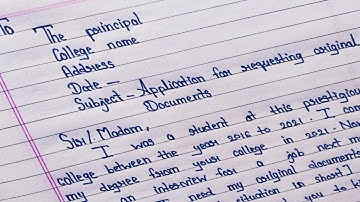 To
The principal
College name
Address
Date –
Subject – Application for requesting original
Documents
Sir/Madam,
I was a student at this prestigious
college between the year 2016 to 2021. I
my degree from your college in 2021. Now
an interview for a job next
need my original documents
situation in short]
you to